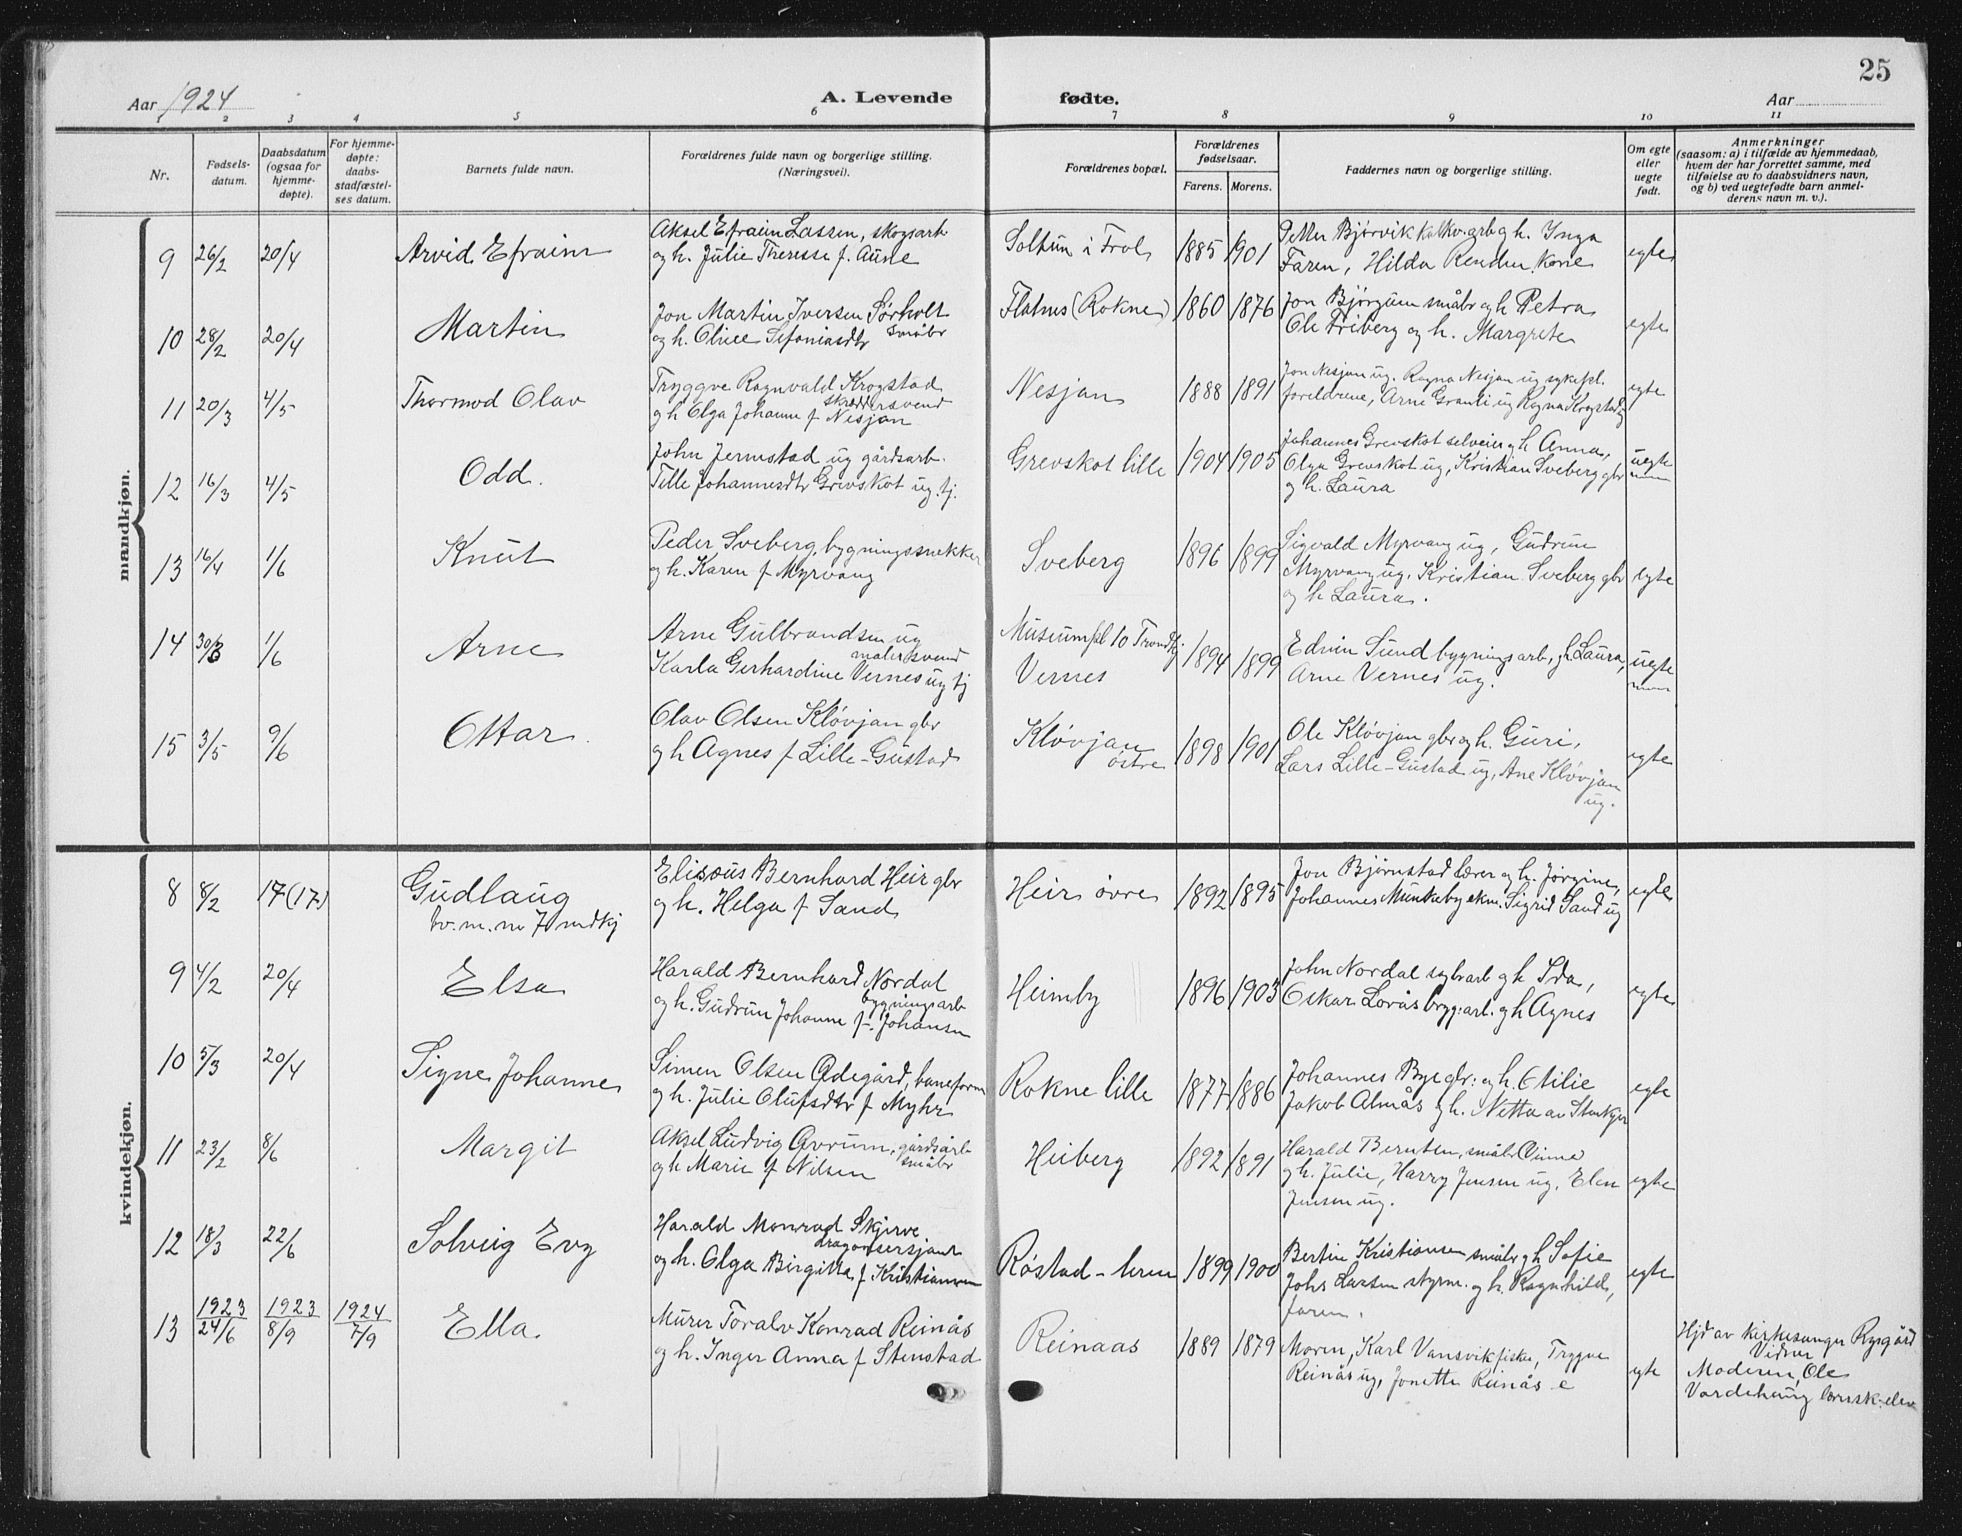 25
Aar 1924 A. Levende fødte. Aar
1 2 3 4 5 6 7 8 9 10 11
Nr.
Fødsels-
datum.
Daabsdatum
(ogsaa for
hjemme-
døpte).
For hjemme-
døpte:
daabs-
stadfæstel-
ses datum.
Barnets fulde navn.
Forældrenes fulde navn og borgerlige stilling.
(Næringsvei).
Forældrenes bopæl.
Forældrenes
fødselsaar.
Farens. Morens.
Faddernes navn og borgerlige stilling.
Om egte
eller
uegte
født.
Anmerkninger
(saasom: a) i tilfælde av hjemmedaab,
hvem der har forrettet samme, med
tilføielse av to daabsvidners navn,
og b) ved uegtefødte barn anmel-
derens navn m. v.).
mandkjøn.
9 26/2 20/4 Arvid Efraim
Aksel Efraim Lassen, skogsarb
og h. Julie Theresse f. Aune
Soltun i Frol 1885 1901
Petter Bjørvik kalkv. arb og h. Inga
Faren, Hilda kone
egte
10 28/2 20/4 Martin
Jon Martin Iversen Sørholt
småbr
og h. Olise Sefaniasdtr
Flatnes (Rokne) 1860 1876
Jon Bjørgum småbr og h Petra
Ole Friberg og h. Margrete
egte
11 20/3 4/5 Thormod Olav
Tryggve Ragnvald Krogstad
skreddersvend
og h Olga Johanne f Nesjan
Nesjan 1888 1891
Jon Nesjan ug. Ragna Nesjan ug sykepl.
foreldrene, Arne Granli ug Ragna Krogstad ug
egte
12 16/3 4/5 Odd.
John Jermstad ug gårdsarb.
Tille Johannesdtr Grevskot ug. tj.
Grevskot lille 1904 1905
Johannes Grevskot selveier og h Anna,
Olga Grevskot ug, Kristian Sveberg gbr
og h. Laura
uegte
13 16/4 1/6 Knut
Peder Sveberg, bygningssnekker
og h. Karen f Myrvang
Sveberg 1896 1899
Sigvald Myrvang ug, Gudrun
Myrvang ug. Kristian Sveberg gbr
og h Laura.
egte
14 30/3 1/6 Arne
Arne Gulbrandsen ug
malersvend
Karla Gerhardine Vernes ug tj
Museumspl 10 Trondhj
Vernes
1894 1899
Edvin Sund bygningsarb, og h Laura,
Arne Vernes ug.
uegte
15 3/5 9/6 Ottar.
Olav Olsen Kløvjan gbr
og h Agnes f Lille-Gustad
Kløvjan
østre
1898 1901
Ole Kløvjan gbr og h. Guri,
Lars Lille-Gustad ug, Ane Kløvjan
ug.
egte
kvindekjøn.
8 8/2 17(17) Gudlaug
tv. m. nr 7 mdkj
Elisæus Bernhard Heir gbr
og h. Helga f Sand
Heir øvre 1892 1895
Jon Bjørnstad lærer og h. Jørgine,
Johannes Munkeby ekm. Sigrid Sand ug
egte
9 4/2 20/4 Elsa
Harald Bernhard Nordal
bygningsarb
og h. Gudrun Johanne f. Johansen
Heimby 1896 1903
John Nordal sagbrarb og h Ida,
Oskar Lorås bygg.arb. og h Agnes
egte
10 5/3 20/4 Signe Johanne
Simen Olsen Ødegård, baneform
og h. Julie Olufsdtr f Myhr
Rokne lille 1877 1886
Johannes Bye gbr. og h. Otilie
Jakob Almås og h. Netta av Stenkjer
egte
11 23/2 8/6 Margit
Aksel Ludvig Avrum, gårdsarb
småbr
og h Marie f Nilsen
Heiberg 1892 1891
Harald Berntsen, småbr
og h. Julie, Harry Jensen ug, Elen
Jensen ug.
egte
12 18/3 22/6 Solveig Evy
Harald Monrad Skjerve
dragonsersjant
og h. Olga Birgitta f Kristiansen
Røstad-leren 1899 1900
Bertin Kristiansen småbr og h Sofie
Johs Larsen styrm. og h. Ragnhild,
faren.
egte
13 1923 24/6 1923 8/9 1924 7/9 Ella
Murer Toralv Konrad Reinås
og h. Inger Anna f Stenstad
Reinaas 1889 1879
Moren, Karl Vansvik fisker, Trygve
Reinås ug, Jonette Reinås e
egte
Hjd av kirkesanger Rygård
Vidner
Moderen, Ole
Vordehaug lærersk. elev